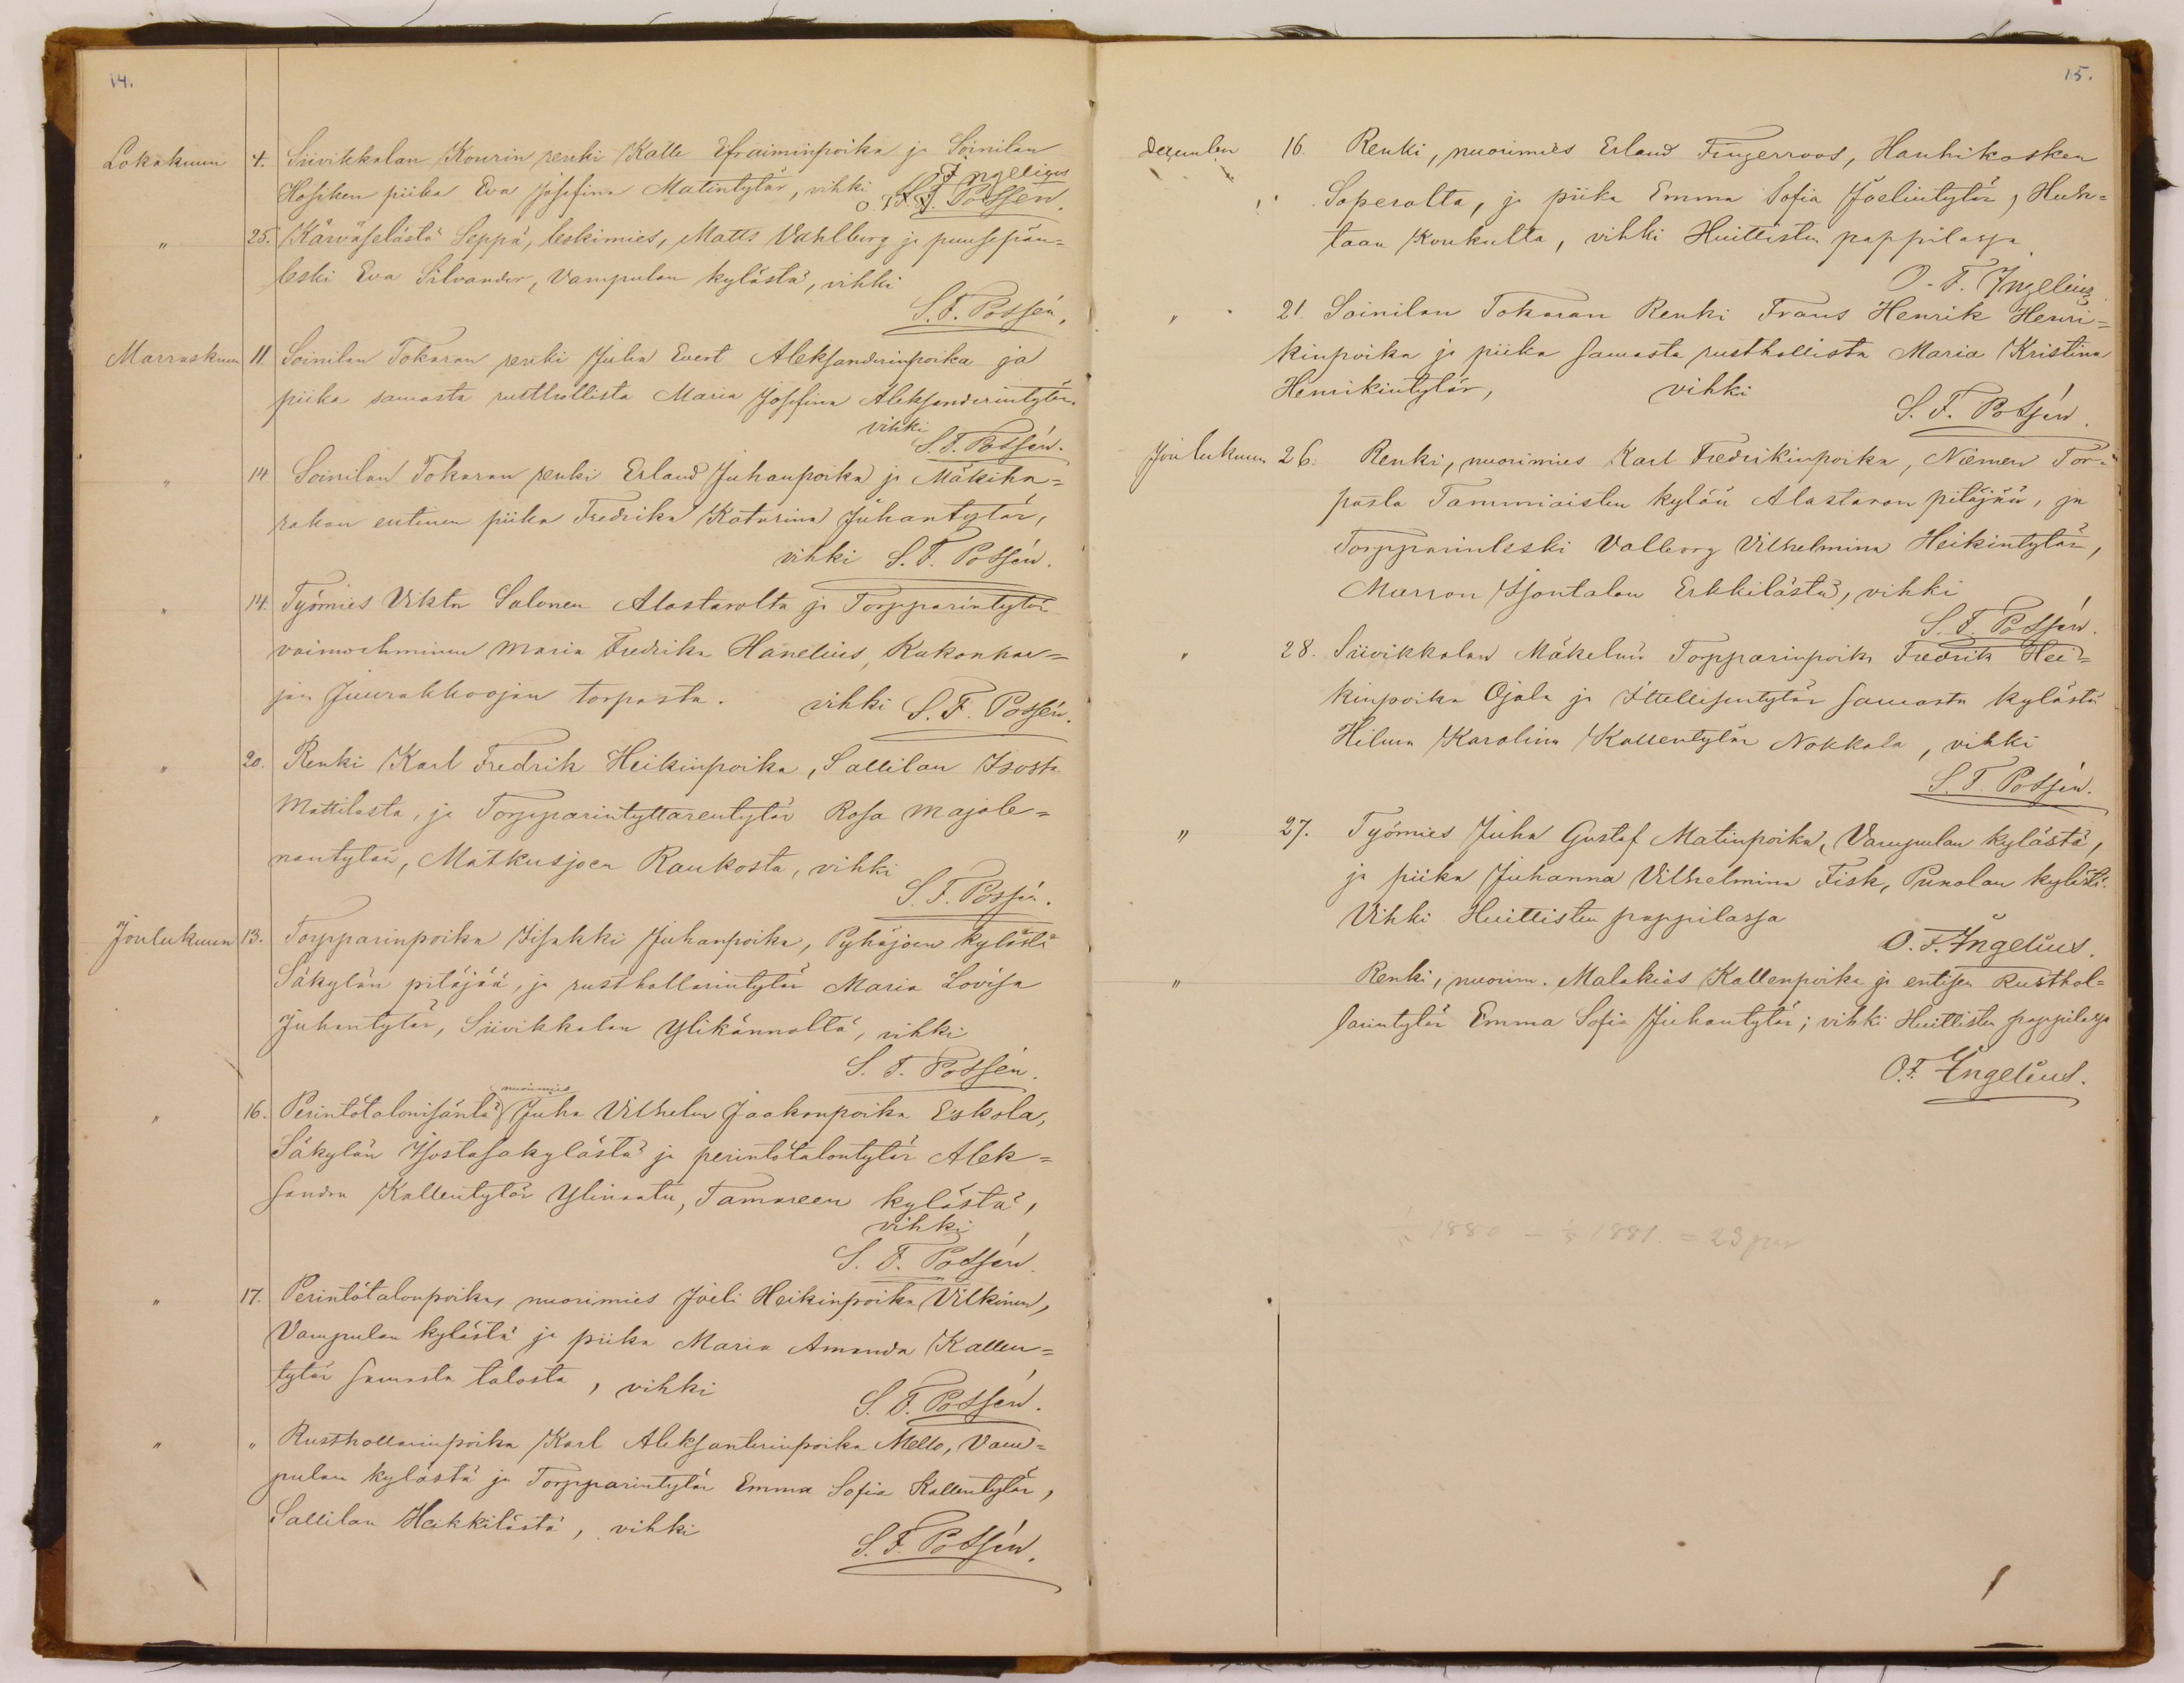 14.
Lokakuun 4. Siivikkalan Kourin renki Kalle Efraiminpoika ja Soinilan
Hosiken piika Eva Josefina Matintytär, vihki O. F. Ingelius S. F. Possén.
" 25. Kärväselästä Seppä, leskimies, Matts Vahlberg ja puusepän=
leski Eva Silvander, Vampulan kylästä, vihki
S. F. Possén.
Marraskuun 11. Soinilan Tokaran renki Juha Evert Aleksanderinpoika ja
piika samasta rusthollista Maria Josefina Aleksanderintytär.
vihki
S. F. Possén.
" 14. Soinilan Tokaran renki Erland Juhanpoika ja Mäkiha=
rakan entinen piika Fredrika Katarina Juhantytär,
vihki S. F. Possén.
" 14. Työmies Viktor Salonen Alastarolta ja Torpparintytär
vaimoihminen Maria Fredrika Hanelius, Kukonhar=
jan Juurakkoojan torpasta. vihki S. F. Possén.
" 20. Renki Karl Fredrik Heikinpoika, Sallilan Isosta
Mattilasta, ja Torpparintyttärentytär Rosa Majale=
nantytär, Matkusjoen Raukosta, vihki
S. F. Possén.
Joulukuun 13. Torpparinpoika Iisakki Juhanpoika, Pyhäjoen kylästä
Säkylän pitäjää, ja rusthollarintytär Maria Lovisa
Juhantytär, Siivikkalan Ylikännoltä, vihki
S. F. Possén.
nuorimies
" 16. Perintötalonisäntä Juha Vilhelm Jaakonpoika Eskola,
Säkylän Isostasakylästä ja perintötalontytär Alek=
sandra Kallentytär Ylinaatu, Tamareen kylästä,
vihki
S. F. Possén.
" 17. Perintötalonpoika, nuorimies Joeli Heikinpoika Vilkinen,
Vampulan kylästä ja piika Maria Amanda Kallen=
tytär samasta talosta, vihki
S. F. Possén.
" " Rusthollarinpoika Karl Aleksanterinpoika Mello, Vam=
pulan kylästä ja Torpparintytär Emma Sofia Kallentytär,
Sallilan Heikkilästä, vihki
S. F. Possén.
15.
December 16. Renki, nuorimies Erland Fingerroos, Hanhikosken
Soperolta, ja piika Emma Sofia Joelintytär, Huh=
taan Koukulta, vihki Huittisten pappilassa
O. F. Ingelius.
" 21. Soinilan Tokaran Renki Frans Henrik Henri=
kinpoika ja piika samasta rusthollista Maria Kristina
Henrikintytär, vihki
S. F. Possén.
Joulukuun 26. Renki, nuorimies Karl Fredrikinpoika, Niemen Tor=
pasta Tammiaisten kylää Alastaron pitäjää, ja
Torpparinleski Valborg Vilhelmina Heikintytär,
Marron Isontalon Erkkilästä, vihki
S. F. Possén.
" 28. Siivikkalan Mäkelän Torpparinpoika Fredrik Hei=
kinpoika Ojala ja Itsellisentytär samasta kylästä
Hilma Karolina Kallentytär Nokkala, vihki
S. F. Possén.
" 27. Työmies Juha Gustaf Matinpoika, Vampulan kylästä,
ja piika Juhanna Vilhelmina Fisk, Punolan kylästä.
Vihki Huittisten pappilassa
O. F. Ingelius.
" Renki, nuorim. Malakias Kallenpoika ja entisen Rusthol=
larintytär Emma Sofia Juhantytär; vihki Huittisten pappilassa
O. F. Ingelius.
1880 – 1881. = 23 par